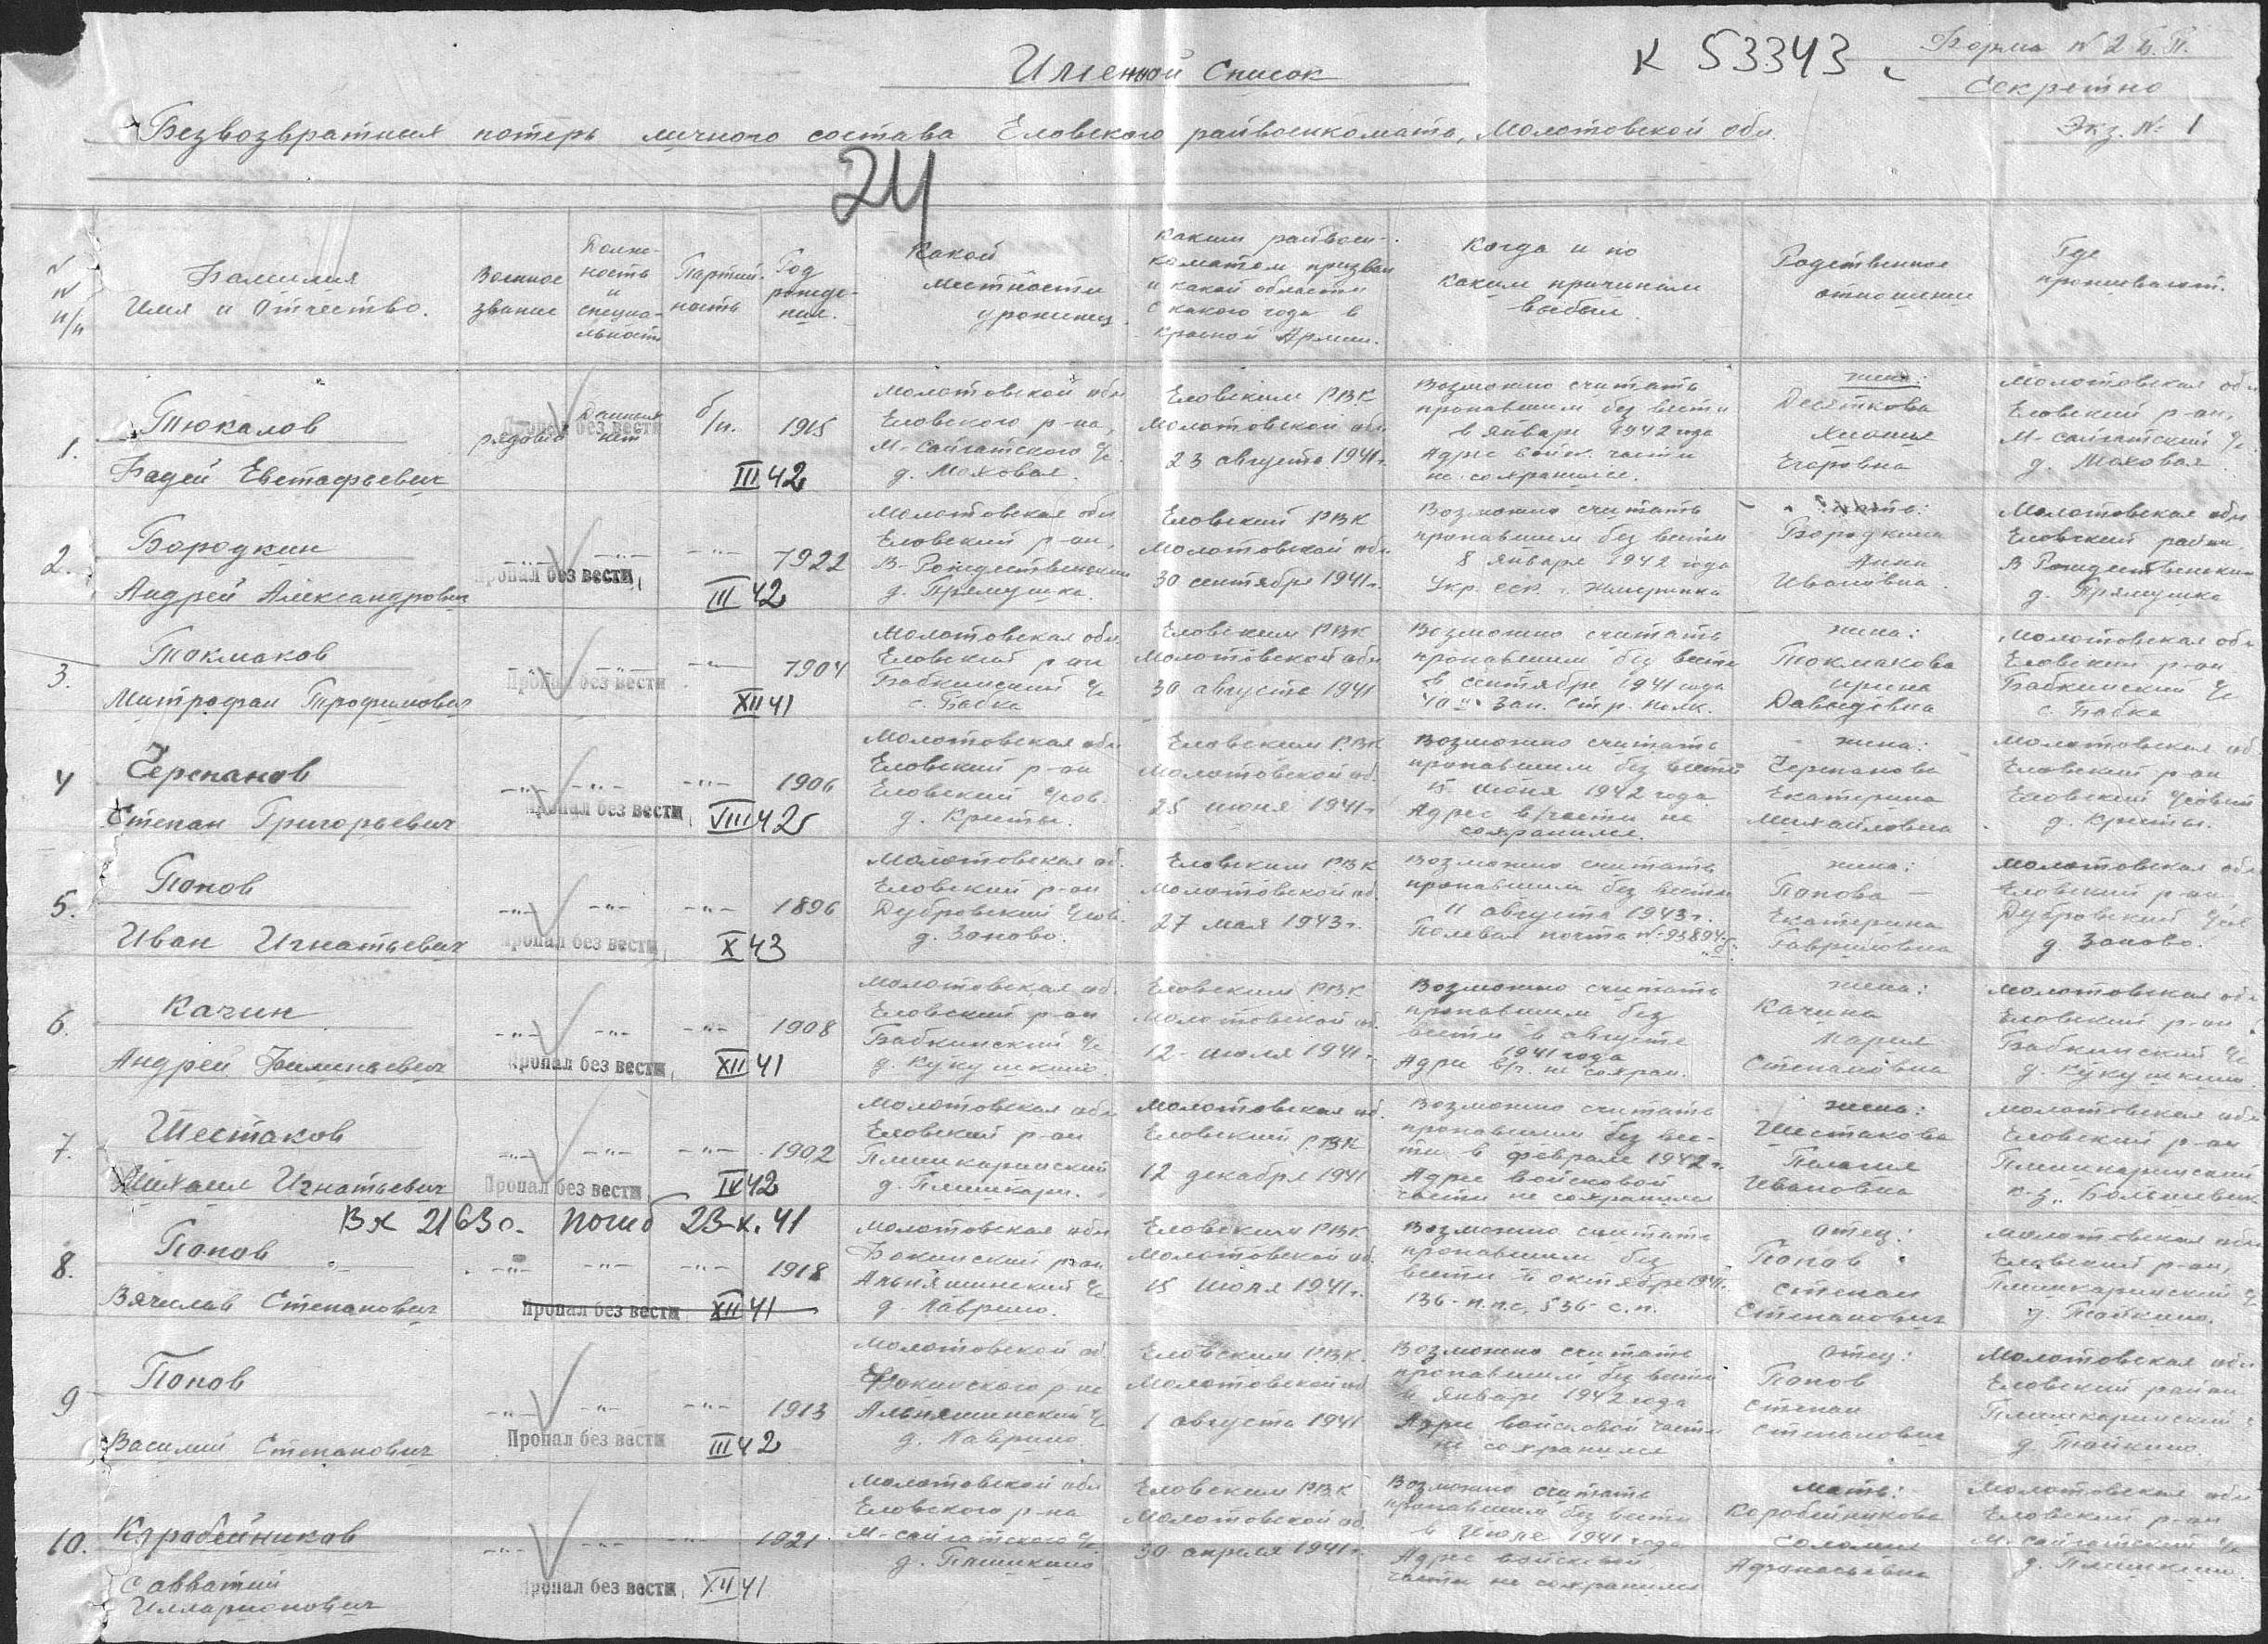 К 53343
Форма № 2 Б.П.
Секретно
Экз. № 1
Именной Список
Безвозвратных потерь личного состава Еловского райвоенкомата, Молотовской обл.
24
N N п/п
Фамилия
Имя и Отчество.
Военное
звание
Долж-
ность
и
специа-
льность
Партий-
ность
Год
рожде-
ния.
Какой
местности
уроженец
Каким райвоен-
коматом призван
и какой области
с какого года в
красной Армии.
Когда и по
каким причинам
выбыл.
Родственное
отношение
Где
проживают.
1.
Тюкалов
Фадей Евстафьевич
рядовой
Данных
нет
Пропал без вести
б/п.
1915
III 42
Молотовской обл
Еловского р-на,
М-Сайгатского с/с
д. Моховая.
Еловским РВК
Молотовской обл
23 августа 1941г.
Возможно считать
пропавшим без вести
в январе 1942 года
Адрес войск. части
не сохранился.
жена:
Десяткова
Егоровна
Молотовская обл
Еловский р-он,
М-Сайгатский с/с
д. Моховая
2.
Бородкин
Андрей Александрович
-"- -"- -"-
Пропал без вести
1922
III 42
Молотовская обл
Еловский р-он,
В-Рождественский
д. Прямушка.
Еловский РВК
Молотовской обл
30 сентября 1941г.
Возможно считать
пропавшим без вести
8 января 1942 года
Укр. сср. г. Жмеринка
мать:
Бородкина
Анна
Ивановна.
Молотовская обл
Еловский район,
В Рождественский
д. Прямушка
3.
Токмаков
Митрофан Трофимович
-"- -"- -"-
Пропал без вести
1904
XII 41
Молотовская обл.
Еловский р-он
Бабкинский с/с
с. Бабка
Еловским РВК
Молотовской обл
30 августа 1941
Возможно считать
пропавшим без вести
в сентябре 1941 года
Зап. Стр. полк.
жена:
Токмакова
Ирина
Давыдовна
Молотовская обл
Еловский р-он.
Бабкинский с/с
с. Бабка
4
Черепанов
Степан Григорьевич
-"- -"- -"-
Пропал без вести
1906
VIII 42
Молотовская обл
Еловский р-он
Еловский с/сов.
д. Кресты.
Еловским РВК
Молотовской об.
25 июня 1941г.
Возможно считать
пропавшим без вести
15 июня 1942 года
Адрес в/части не
сохранился.
жена:
Черепанова
Екатерина
Михайловна
Молотовская об
Еловский р-он
Еловский с/совет
д. Кресты.
5.
Попов
Иван Игнатьевич
-"- -"- -"-
Пропал без вести
1896
X 43
Молотовская об.
Еловский р-он
Дубровский с/сов.
д. Заново.
Еловским РВК
Молотовской об.
27 мая 1943г.
Возможно считать
пропавшим без вести
11 августа 1943г.
Полевая почта № 93894
жена:
Попова
Екатерина
Гавриловна
Молотовская обл
Еловский р-он
Дубровский с/с
д. Заново.
6.
Качин
Андрей Филипьевич
-"- -"- -"-
Пропал без вести
1908
XII 41
Молотовская об.
Еловский р-он
Бабкинский с/с
д. Кукушкино.
Еловским РВК
Молотовской об.
12 июля 1941г.
Возможно считать
пропавшим без
вести в августе
1941 года
Адрес в/ч. не сохран.
жена:
Качина
Мария
Степановна
Молотовская обл
Еловский р-он
Бабкинский с/с
д. Кукушкино.
7.
Шестаков
Михаил Игнатьевич
-"- -"- -"-
Пропал без вести
1902
IV 42
Молотовская обл
Еловский р-он
Плишкаринский
д. Плишкари.
Молотовская об.
Еловский РВК
12 декабря 1941
Возможно считать
пропавшим без вес-
ти в феврале 1942г.
Адрес войсковой
части не сохранился
жена:
Шестакова
Пелагия
Ивановна
Молотовская обл
Еловский р-он
Плишкаринский
к-з „Большевик
Вх 2163с. погиб 23-X. 41
8.
Попов
Вячеслав Степанович
-"- -"- -"-
Пропал без вести
1918
XII 41
Молотовская обл
Фокинский р-он
Альняшинский с/с
д. Лаврино.
Еловским РВК
Молотовской об.
15 июля 1941г.
Возможно считать
пропавшим без
вести в октябре 1941г.
136 п.п.с, 536 с.п.
отец:
Попов
Степан
Степанович
Молотовская обл
Еловский р-он,
Плишкаринский с/с
д. Тойкино.
9
Попов
Василий Степанович
-"- -"- -"-
Пропал без вести
1913
III 42
Молотовской об.
Фокинского р-на
Альняшинский с/с
д. Лаврино
Еловским РВК
Молотовской об
1 августа 1941
Возможно считать
пропавшим без вести
в январе 1942 года
Адрес войсковой части
не сохранился
отец:
Попов
Степан
Степанович
Молотовская обл
Еловский район
Плишкаринский с
д. Тойкино.
10.
Коробейников
Савватий
Илларионович
-"- -"- -"-
Пропал без вести
1921
XII 41
Молотовской обл
Еловского р-на
М-Сайгатского с/с
д. Плишкино
Еловским РВК
Молотовской об.
30 апреля 1941г.
Возможно считать
пропавшим без вести
в июле 1941 года
Адрес войсковой
части не сохранился
мать:
Коробейникова
Соломия
Афонасьевна
Молотовская обл
Еловский р-он
М-Сайгатский с/с
д. Плишкино.